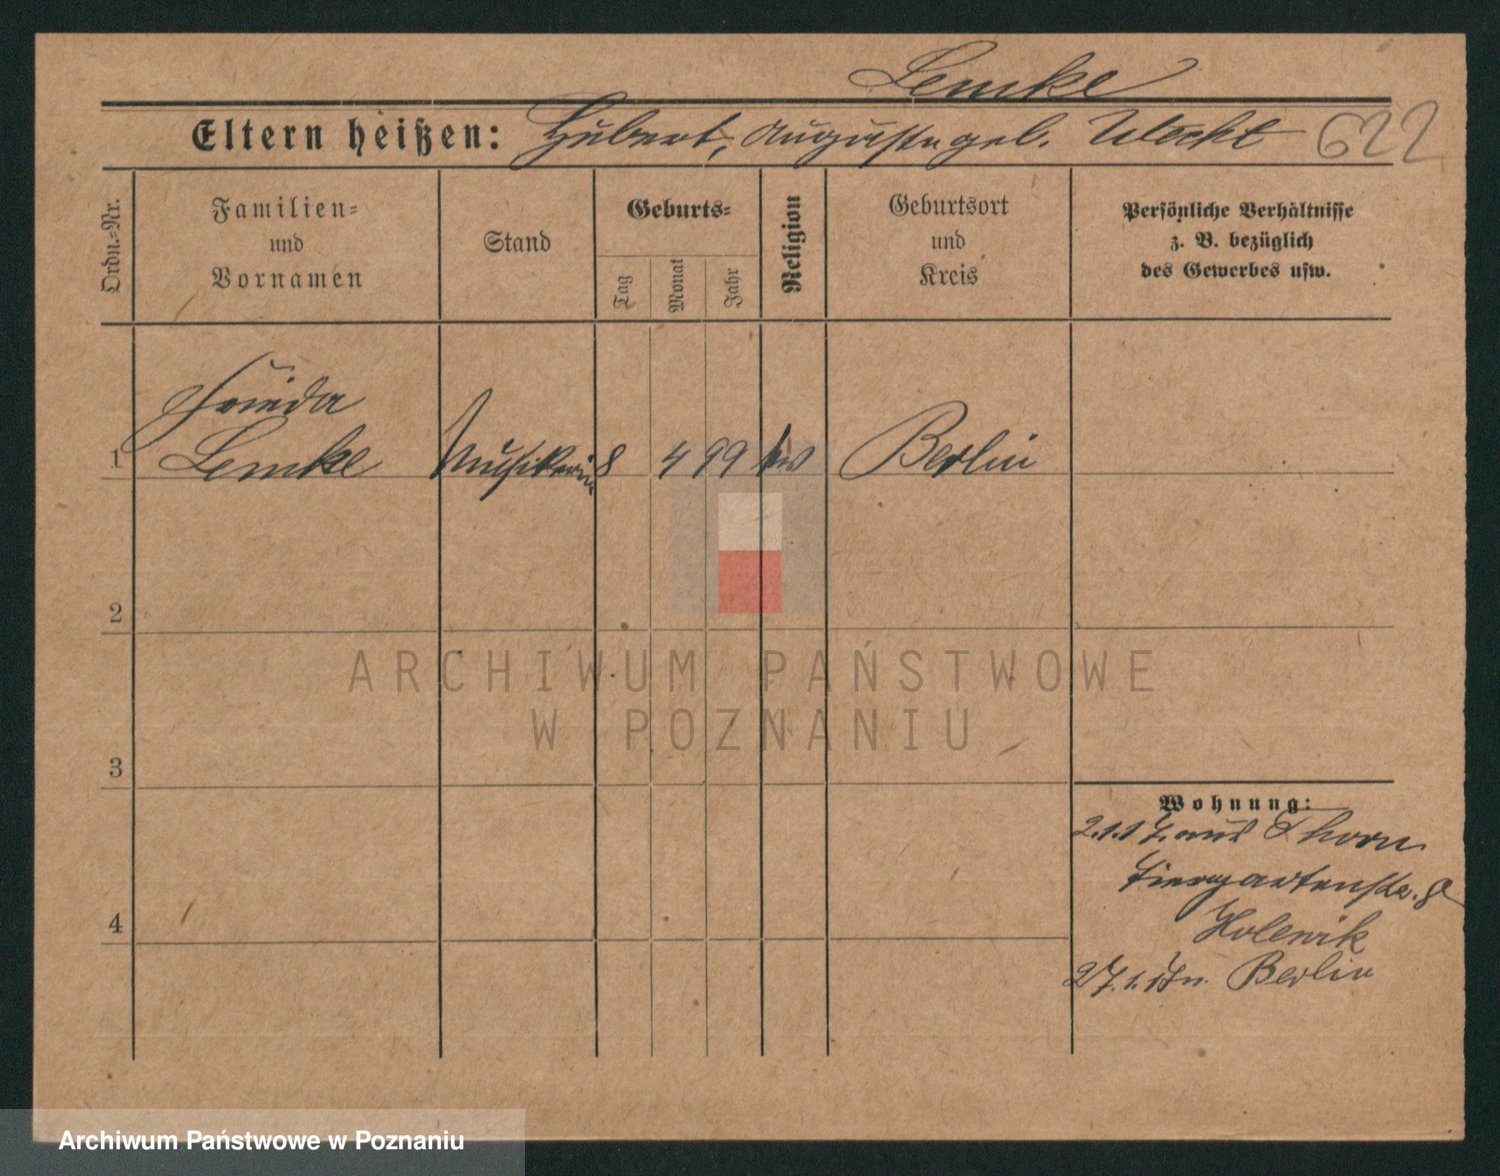 Lemke
Eltern heißen: Hubert, Auguste geb. 622
Ordn.-Nr.
Familien-
und
Vornamen
Stand
Geburts-
Tag
Monat
Jahr
Religion
Geburtsort
und
Kreis
Persönliche Verhältnisse
z. B. bezüglich
des Gewerbes usw.
Frieda
1 Lemke Musikerin 8 4 99 Berlin
2
3
4
Wohnung:
2.1.17. aus Thorn
Tiergartenstr. 8
27.1.17 n. Berlin
ARCHIWUM PAŃSTWOWE
W POZNANIU
Archiwum Państwowe w Poznaniu